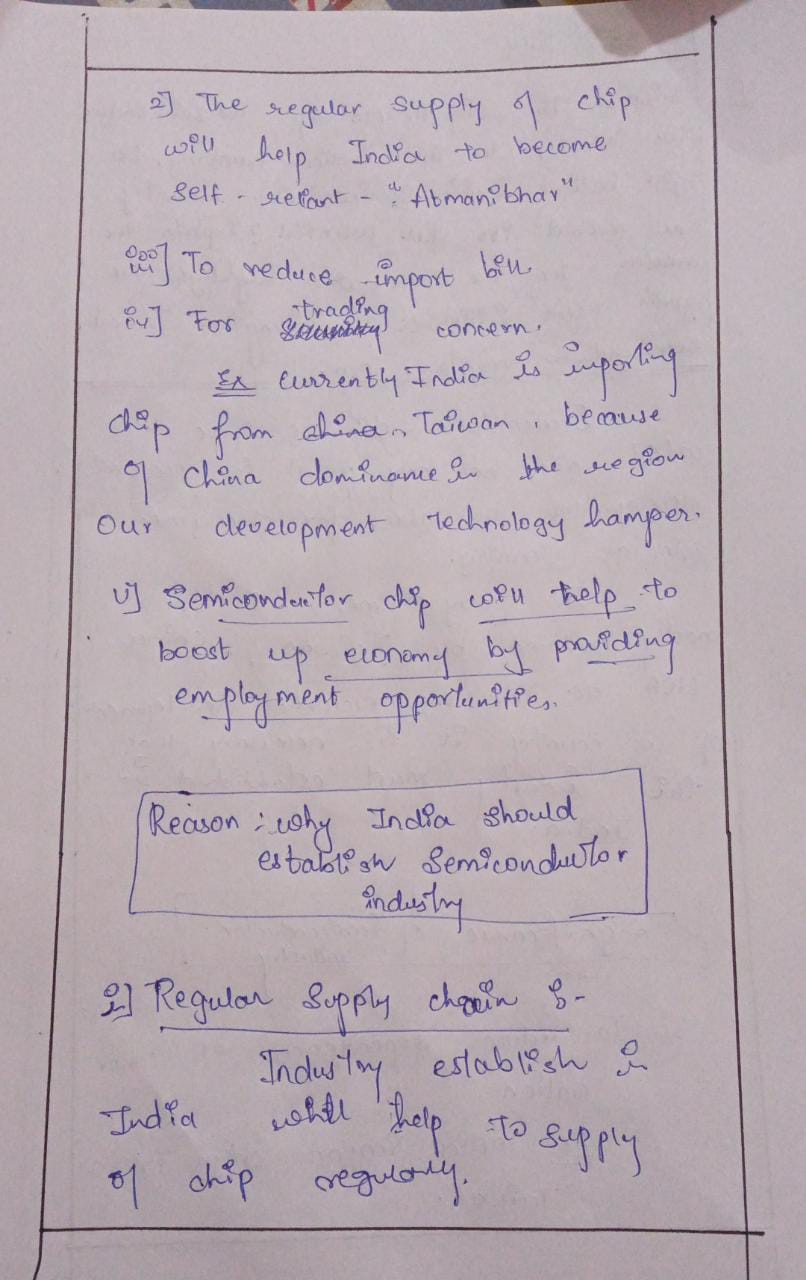 2] The regular supply of chip
will help India to become
self - reliant - "Atmanibhar"
iii] To reduce import bill
iv] For trading concern.
Ex Currently India is importing
chip from china, Taiwan, because
of China dominance in the region
Our development technology hamper.
v] Semiconductor chip will help to
boost up economy by providing
employment opportunities.
Reason : why India should
establish Semiconductor
industry
i] Regular Supply chain :-
Industry establish in
India will help to supply
of chip regularly.